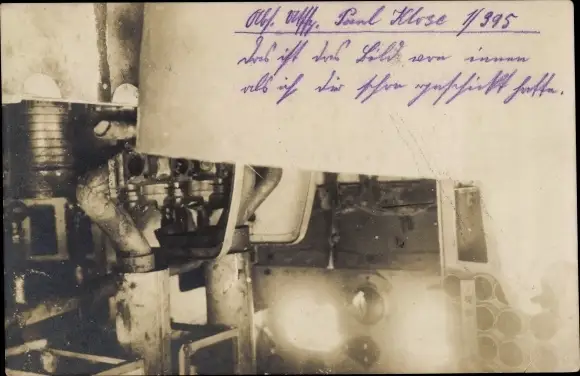 Abs. Uffz. Paul Klose 1/395
Das ist das Bild von innen
als ich Dir schon geschickt hatte.